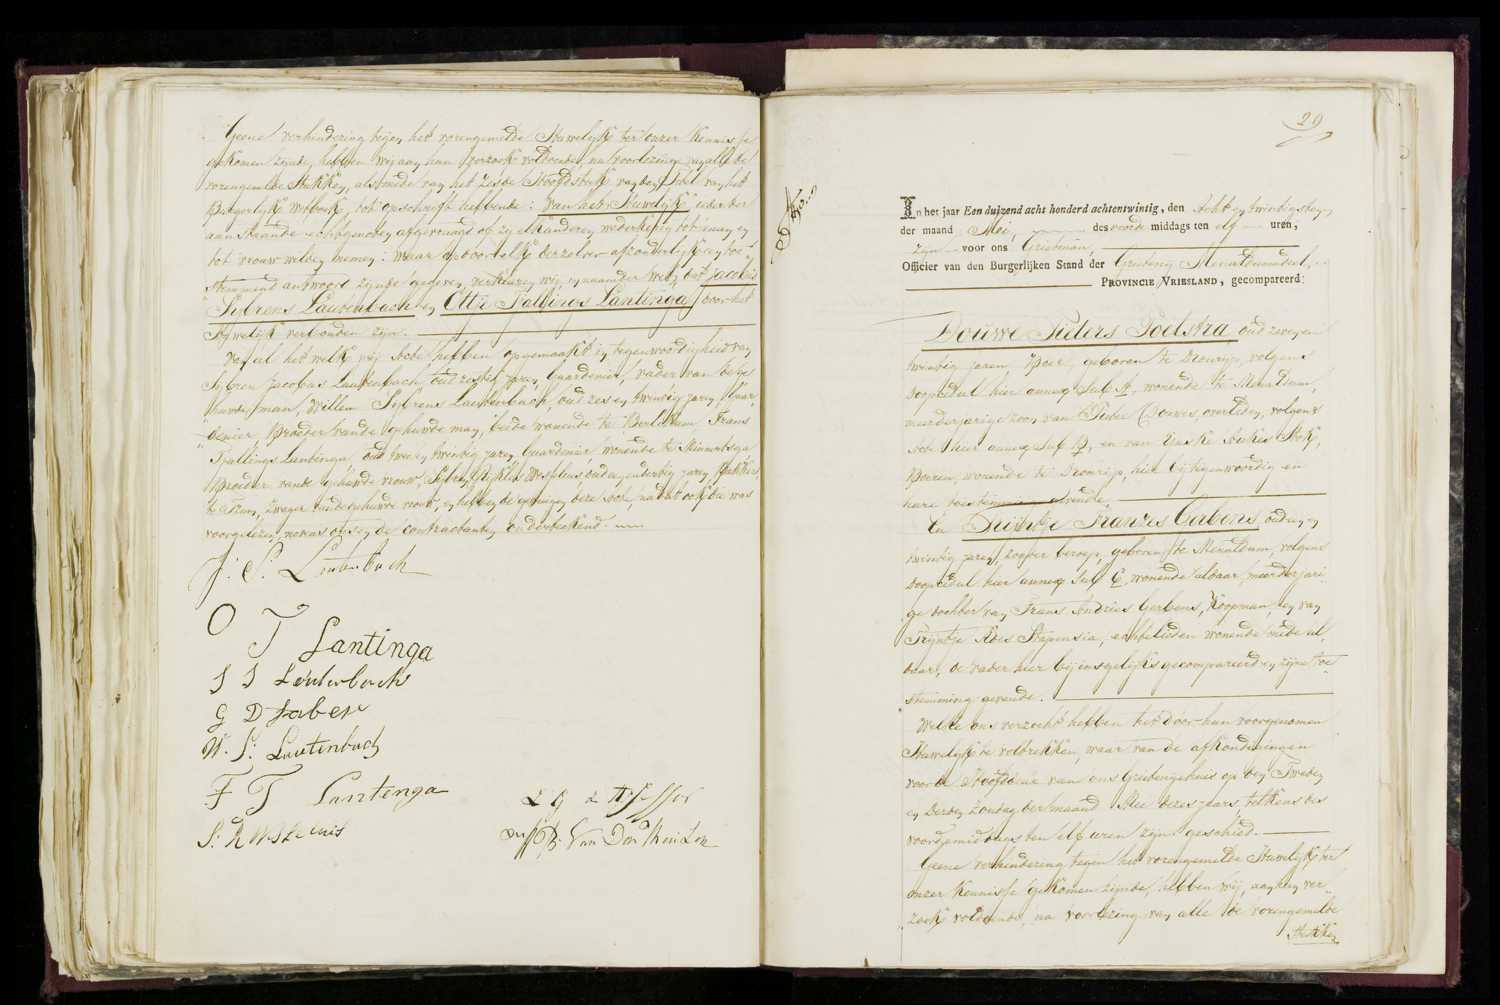 Geene verhindering tegen het vorengemelde Huwelijk ter onzer kennisse
gekomen zijnde, hebben wij aan hun verzoek voldoende, na voorlezing van alle de
vorengemelde Stukken, alsmede van het Zesde Hoofdstuk van den Titel van het
Burgerlijk Wetboek, tot opschrift hebbende: Van het Huwelijk, ieder der
aanstaande echtgenoten afgevraagd of zij elkanderen wederkerig tot man en
tot vrouw willen nemen: waar op door elk derzelver afzonderlijk een toe-
stemmend antwoord zijnde gegeven, verklaren wij in naam der Wet, dat Jacobus
Sijbrens Lautenbach en Ottje Tjallings Lantinga, door het
Huwelijk verbonden zijn.
Van al het welk wij Acte hebben opgemaakt in tegenwoordigheid van
Sijbren Jacobus Lautenbach, oud zestig jaren, Gardenier, vader van de ge-
huwde man, Willem Sijbrens Lautenbach, oud zes en twintig jaren, Gar-
denier, broeder van de gehuwde man, beide wonende te Berlikum, Frans
Tjallings Lantinga oud twee en twintig jaren, Gardenier wonende te Minnertsga
broeder van de gehuwde vrouw, Sijbren Rijklis Westerhuis oud een en dertig jaren, Bakker,
te , zwager van de gehuwde vrouw, en hebben de getuigen deze Acte, nadat ook die was
voorgelezen, nevens ons en de contractanten onderteekend.
J: S. Loutenbach
O T Lantinga
S J Leuterbach
G D Faber
W. S: Lautenbach
F T Lantenga
S: R Westerhuis
29
No. 29
In het jaar Een duizend acht honderd achtentwintig, den Acht en twintigsten
der maand Mei, des voor middags ten elf uren,
zijn voor ons Grietman,
Officier van den Burgerlijken Stand der Grieteny Menaldumadeel,
PROVINCIE VRIESLAND, gecompareerd:
Douwe Pieters Poelstra, oud zeven en
twintig jaren, Boer, geboren te Dronrijp, volgens
doopcedul hier annex Sub A, wonende te Menaldum,
meerderjarige zoon van Pieter Douwes, overleden, volgens
Acte hier annex Sub B, en van Zaske Aukes Stok,
Boerin, wonende te Dronrijp, hier bij tegenwoordig en
hare toestemming gevende
En Trijntje Franzes Gerbens, oud een en
twintig jaren, zonder beroep, geboren te Menaldum, volgens
doopcedul hier annex Sub C, wonende aldaar, meerderjari-
ge dochter van Frans Andries Gerbens, Koopman, en van
Trijntje Ades Stapensia, echtelieden wonende mede al-
daar, de vader hier bij insgelijks gecompareerd en zijne toe-
stemming gevende.
Welke ons verzocht hebben het door hun voorgenomen
Huwelijk te voltrekken, waar van de afkondigingen
voor de Hoofddeur van ons Grietenijehuis op den Tweden
en Derden Zondag der maand Mei dezes jaars, telkens des
voordemiddags ten elf uren zijn geschied.
Geene verhindering tegen het vorengemelde Huwelijk ter
onzer Kennisse gekomen zijnde, hebben wij, aan hun ver-
zoek voldoende, na voorlezing van alle de vorengemelde
Stukken